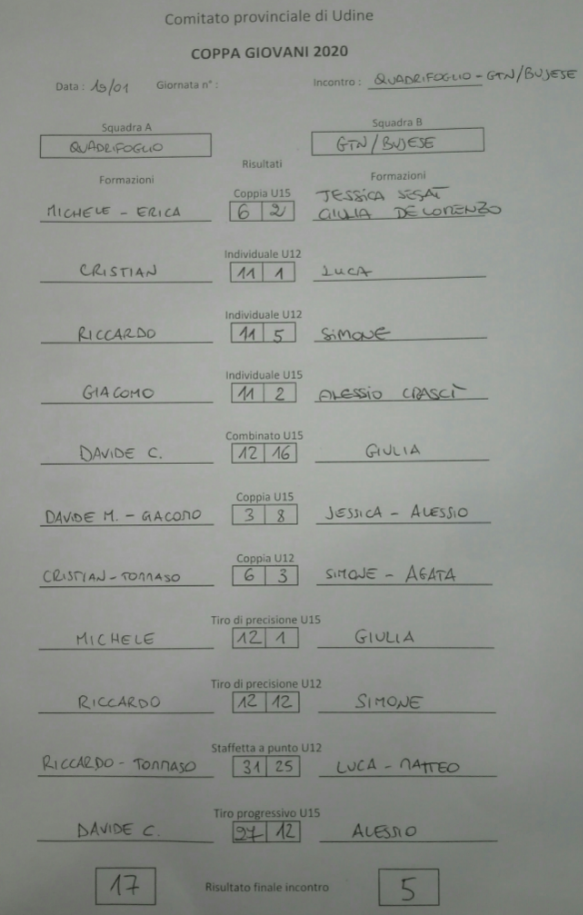 Comitato provinciale di Udine
COPPA GIOVANI 2020
Data : 19/01 Giornata n° : Incontro : QUADRIFOGLIO - GTN/BUJESE
Squadra A Squadra B
QUADRIFOGLIO GTN/BUJESE
Risultati
Formazioni Formazioni
Coppia U15
MICHELE - ERICA 6 2 JESSICA SESAT
GIULIA DE LORENZO
Individuale U12
CRISTIAN 11 1 LUCA
Individuale U12
RICCARDO 11 5 SIMONE
Individuale U15
GIACOMO 11 2 ALESSIO CRASCÌ
Combinato U15
DAVIDE C. 12 16 GIULIA
Coppia U15
DAVIDE M. - GIACOMO 3 8 JESSICA - ALESSIO
Coppia U12
CRISTIAN - TOMMASO 6 3 SIMONE - AGATA
Tiro di precisione U15
MICHELE 12 1 GIULIA
Tiro di precisione U12
RICCARDO 12 12 SIMONE
Staffetta a punto U12
RICCARDO - TOMMASO 31 25 LUCA - MATTEO
Tiro progressivo U15
DAVIDE C. 12 ALESSIO
17 Risultato finale incontro 5